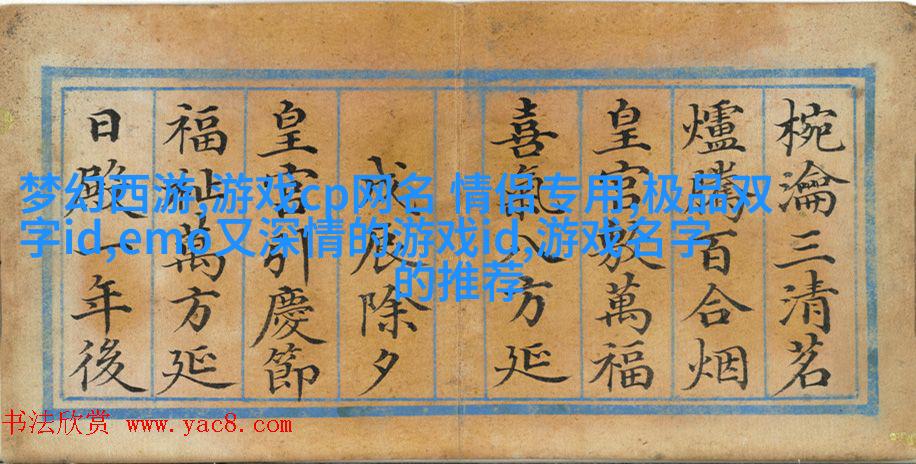 椀瀹三清茗
爐騰百合烟
皇宫敷萬福
喜氣八方延
戊辰除夕
皇宫引慶節
福祉萬方延
日殿一年後
梦幻西游,游戏cp网名 情侣专用,极品双
字id,emo又深情的游戏id,游戏名字
的推荐
书法欣赏 www.yac8.com